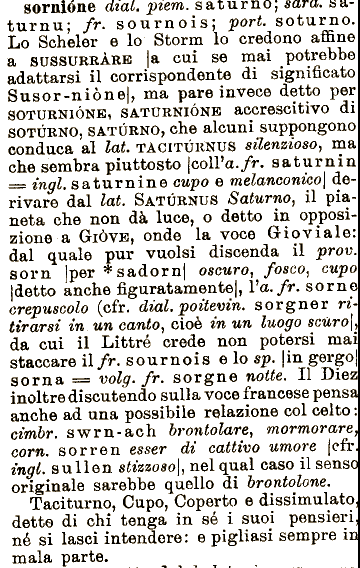 sornióne dial. piem. saturno; sard. sa-
turnu; fr. sournois; port. soturno.
Lo Scheler e lo Storm lo credono affine
a SUSSURRÀRE |a cui se mai potrebbe
adattarsi il corrispondente di significato
Susor-niòne|, ma pare invece detto per
SOTURNIÓNE, SATURNIÓNE accrescitivo di
SOTÚRNO, SATÚRNO, che alcuni suppongono
conduca al lat. TACITÚRNUS silenzioso, ma
che sembra piuttosto |coll'a. fr. saturnin
= ingl. saturnine cupo e melanconico| de-
rivare dal lat. SATÚRNUS Saturno, il pia-
neta che non dà luce, o detto in opposi-
zione a GIÒVE, onde la voce Gioviale:
dal quale pur vuolsi discenda il prov.
sorn |per *sadorn| oscuro, fosco, cupo
|detto anche figuratamente|, l'a. fr. sorne
crepuscolo (cfr. dial. poitevin. sorgner ri-
tirarsi in un canto, cioè in un luogo scuro|,
da cui il Littré crede non potersi mai
staccare il fr. sournois e lo sp. |in gergo|
sorna = volg. fr. sorgne notte. Il Diez
inoltre discutendo sulla voce francese pensa
anche ad una possibile relazione col celto:
cimbr. swrn-ach brontolare, mormorare,
corn. sorren esser di cattivo umore |cfr.
ingl. sullen stizzoso|, nel qual caso il senso
originale sarebbe quello di brontolone.
Taciturno, Cupo, Coperto e dissimulato,
detto di chi tenga in sé i suoi pensieri,
né si lasci intendere: e pigliasi sempre in
mala parte.